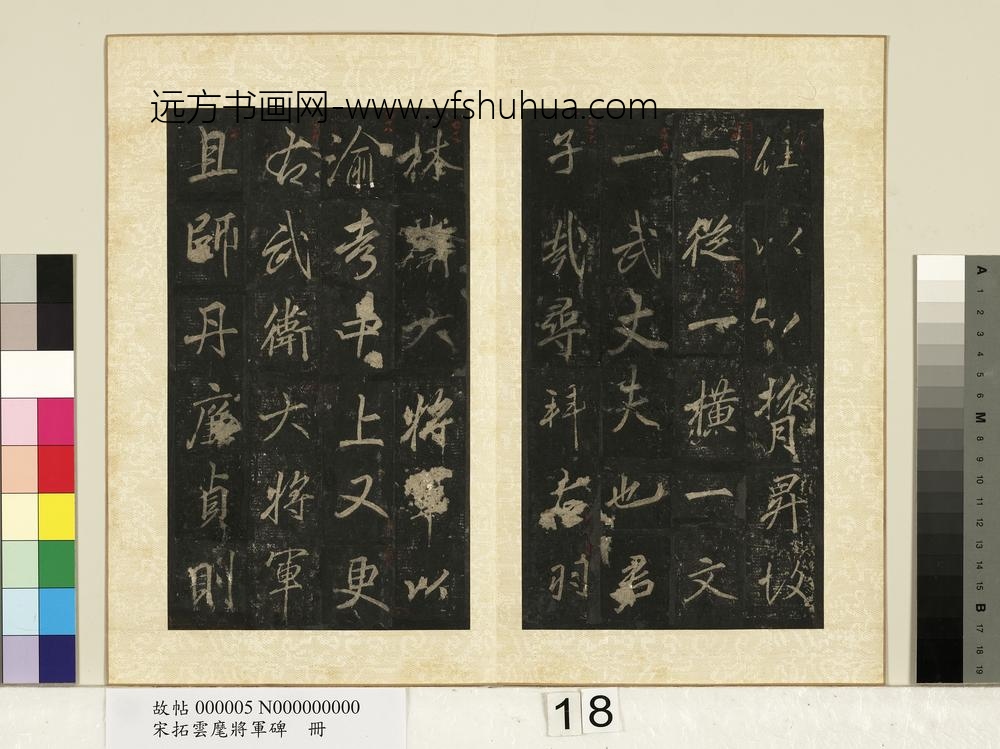 远方书画网-www.yfshuhua.com
以
一從一橫一文
一武丈夫也君
子哉尋拜右羽
林大將軍以
渝考中上又更
右武衛大將軍
且師丹廉貞則
故帖 000005 N000000000
宋拓雲麾將軍碑 冊
18
A 1 2 3 4 5 6 M 8 9 10 11 12 13 14 15 B 17 18 19